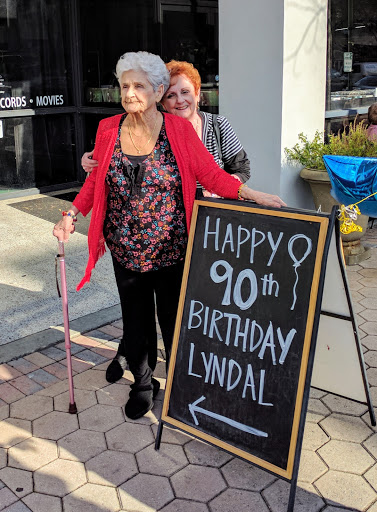 CORDS • MOVIES
HAPPY
90th
BIRTHDAY
LYNDAL